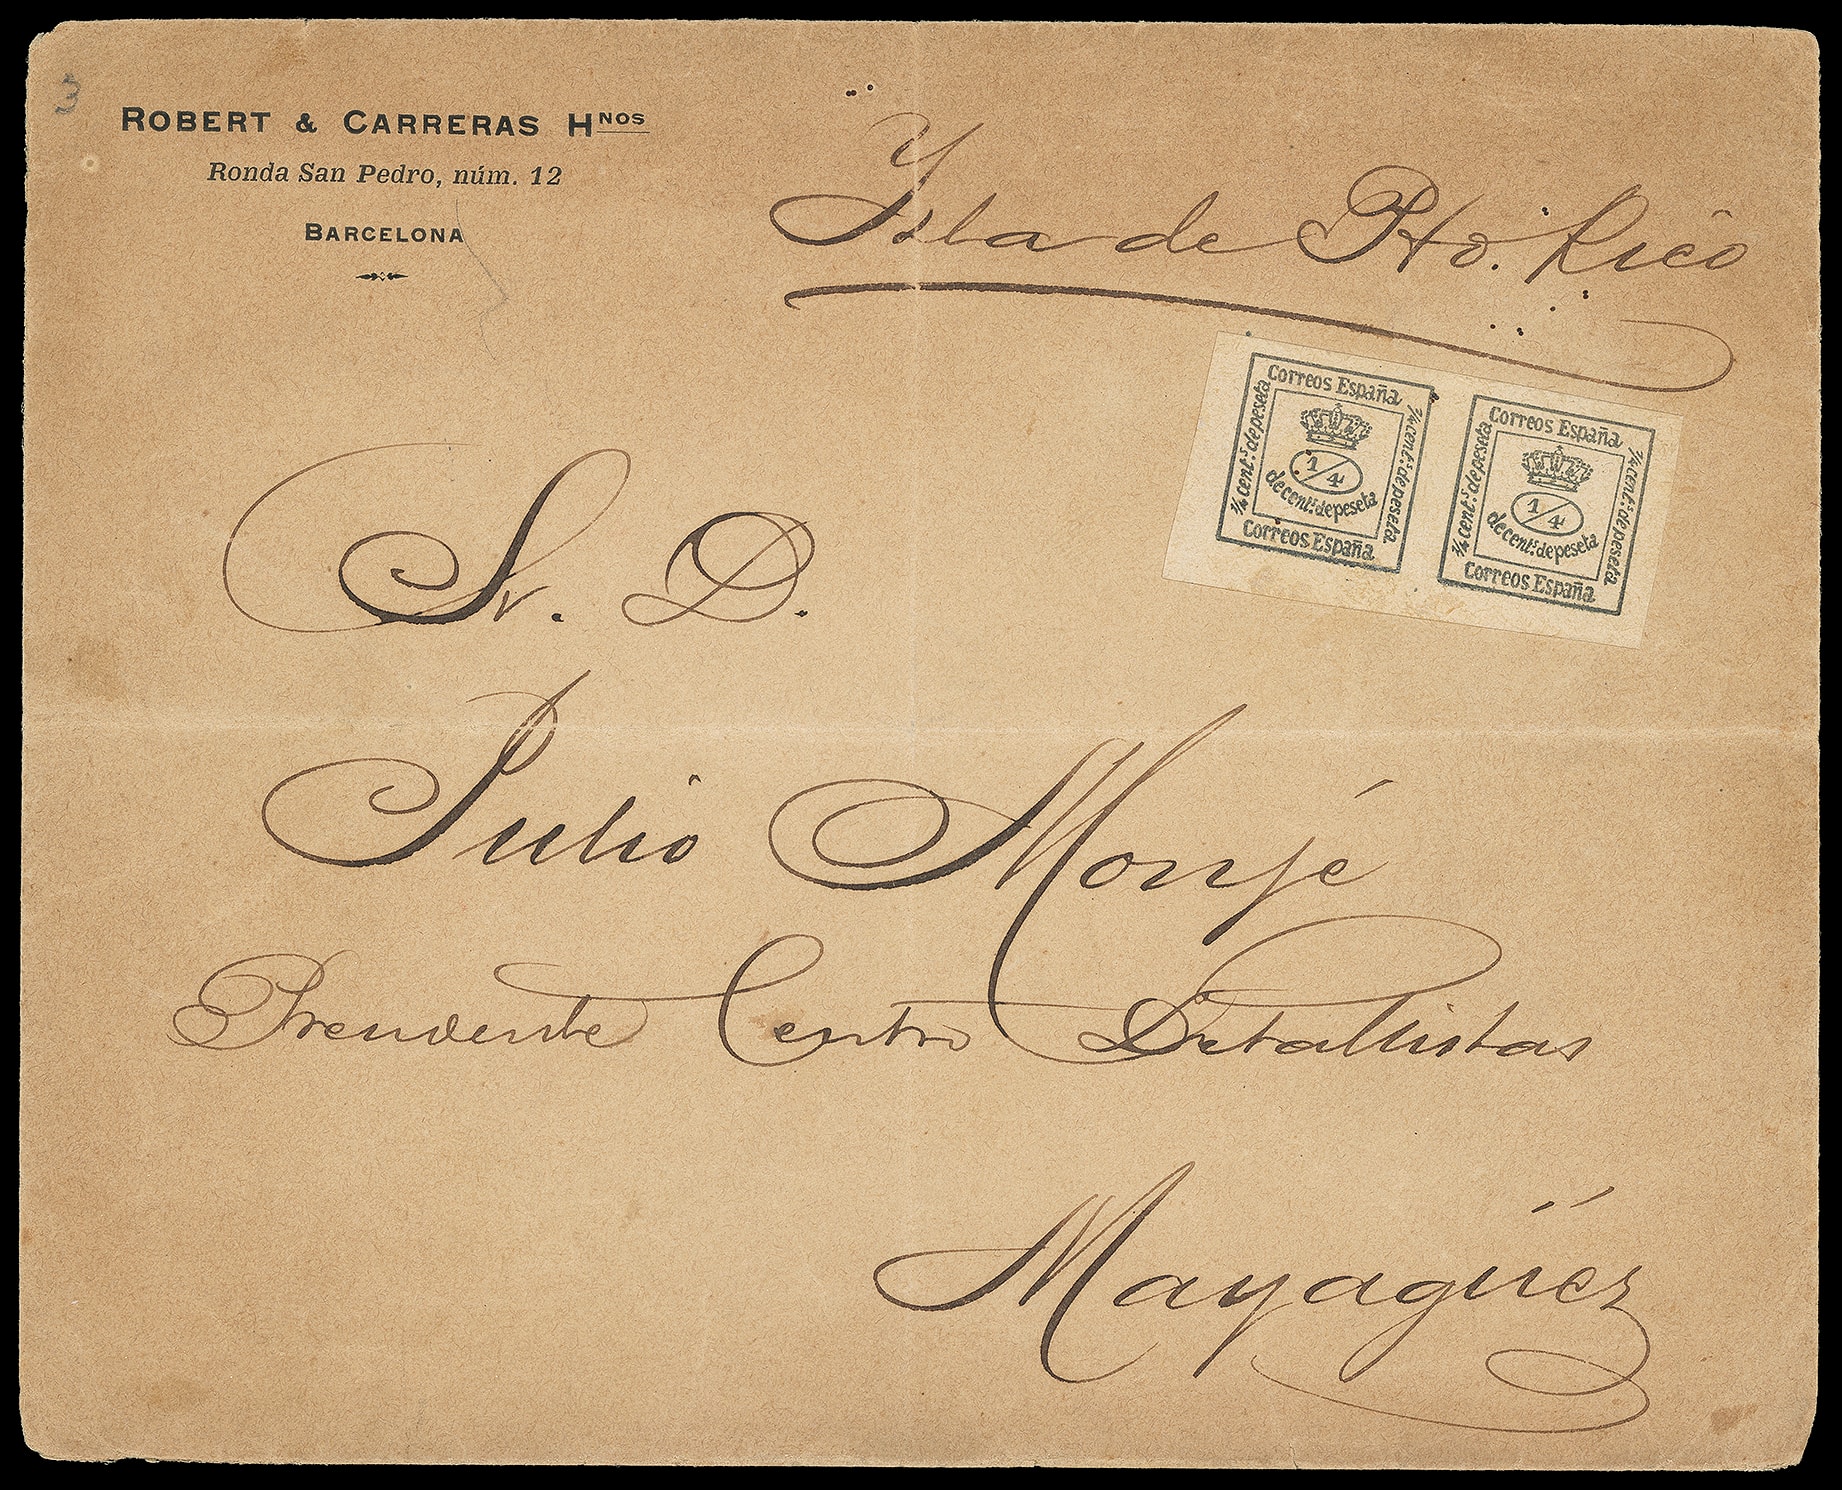 3
ROBERT & CARRERAS HNOS
Ronda San Pedro, núm. 12
BARCELONA
Ysla de Pto. Rico
Correos España
1/4 cent.s de peseta
1/4 cent.s de peseta
1/4
de cent.s de peseta
Correos España
Correos España
1/4 cent.s de peseta
1/4 cent.s de peseta
1/4
de cent.s de peseta
Correos España
Sr. D.
Julio Monjé
Presidente Centro Detallistas
Mayagüez